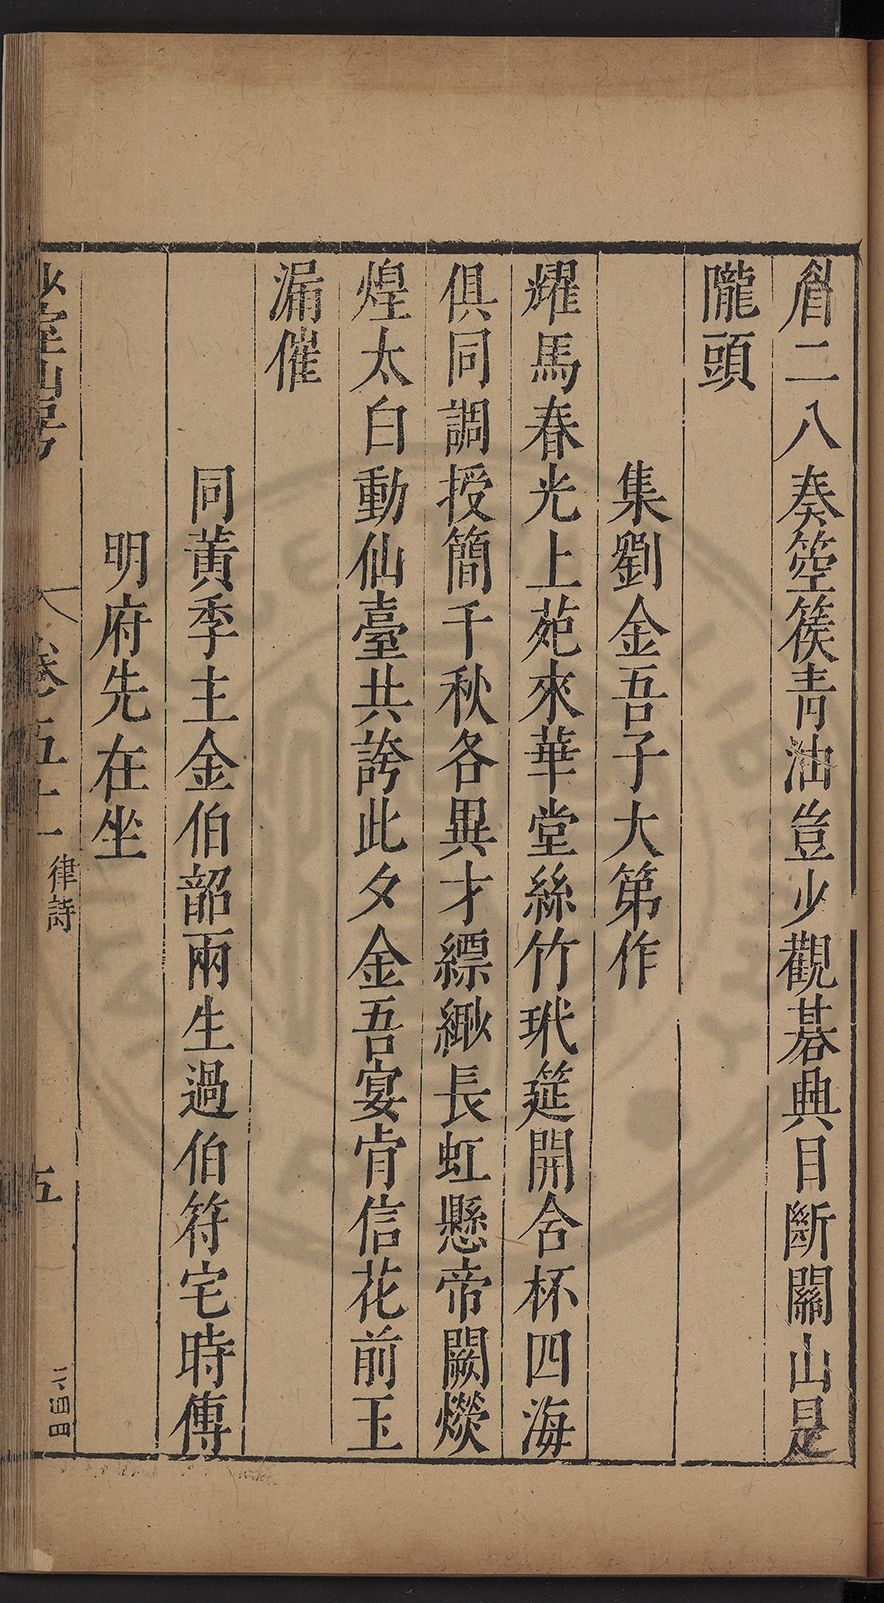 眉二八奏箜篌青油豈少觀碁興目斷關山是
隴頭
集劉金吾子大第作
耀馬春光上苑來華堂絲竹玳筵開含杯四海
俱同調授簡千秋各異才縹緲長虹懸帝闕熒
煌太白動仙臺共誇此夕金吾宴肯信花前玉
漏催
同黃季主金伯韶兩生過伯符宅時傳
明府先在坐
少室山房
卷五十
律詩
五